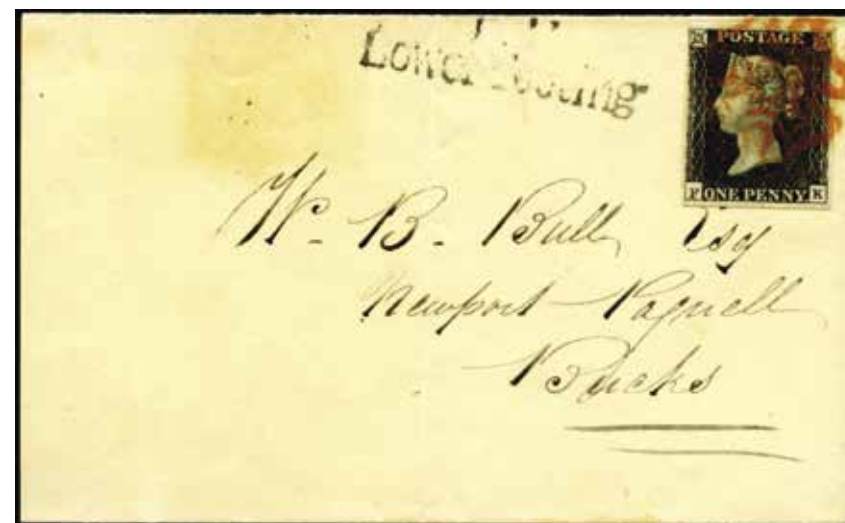 Lower Tooting
POSTAGE
P ONE PENNY K
W. B. Bull, Esq
Newport Pagnell
Bucks